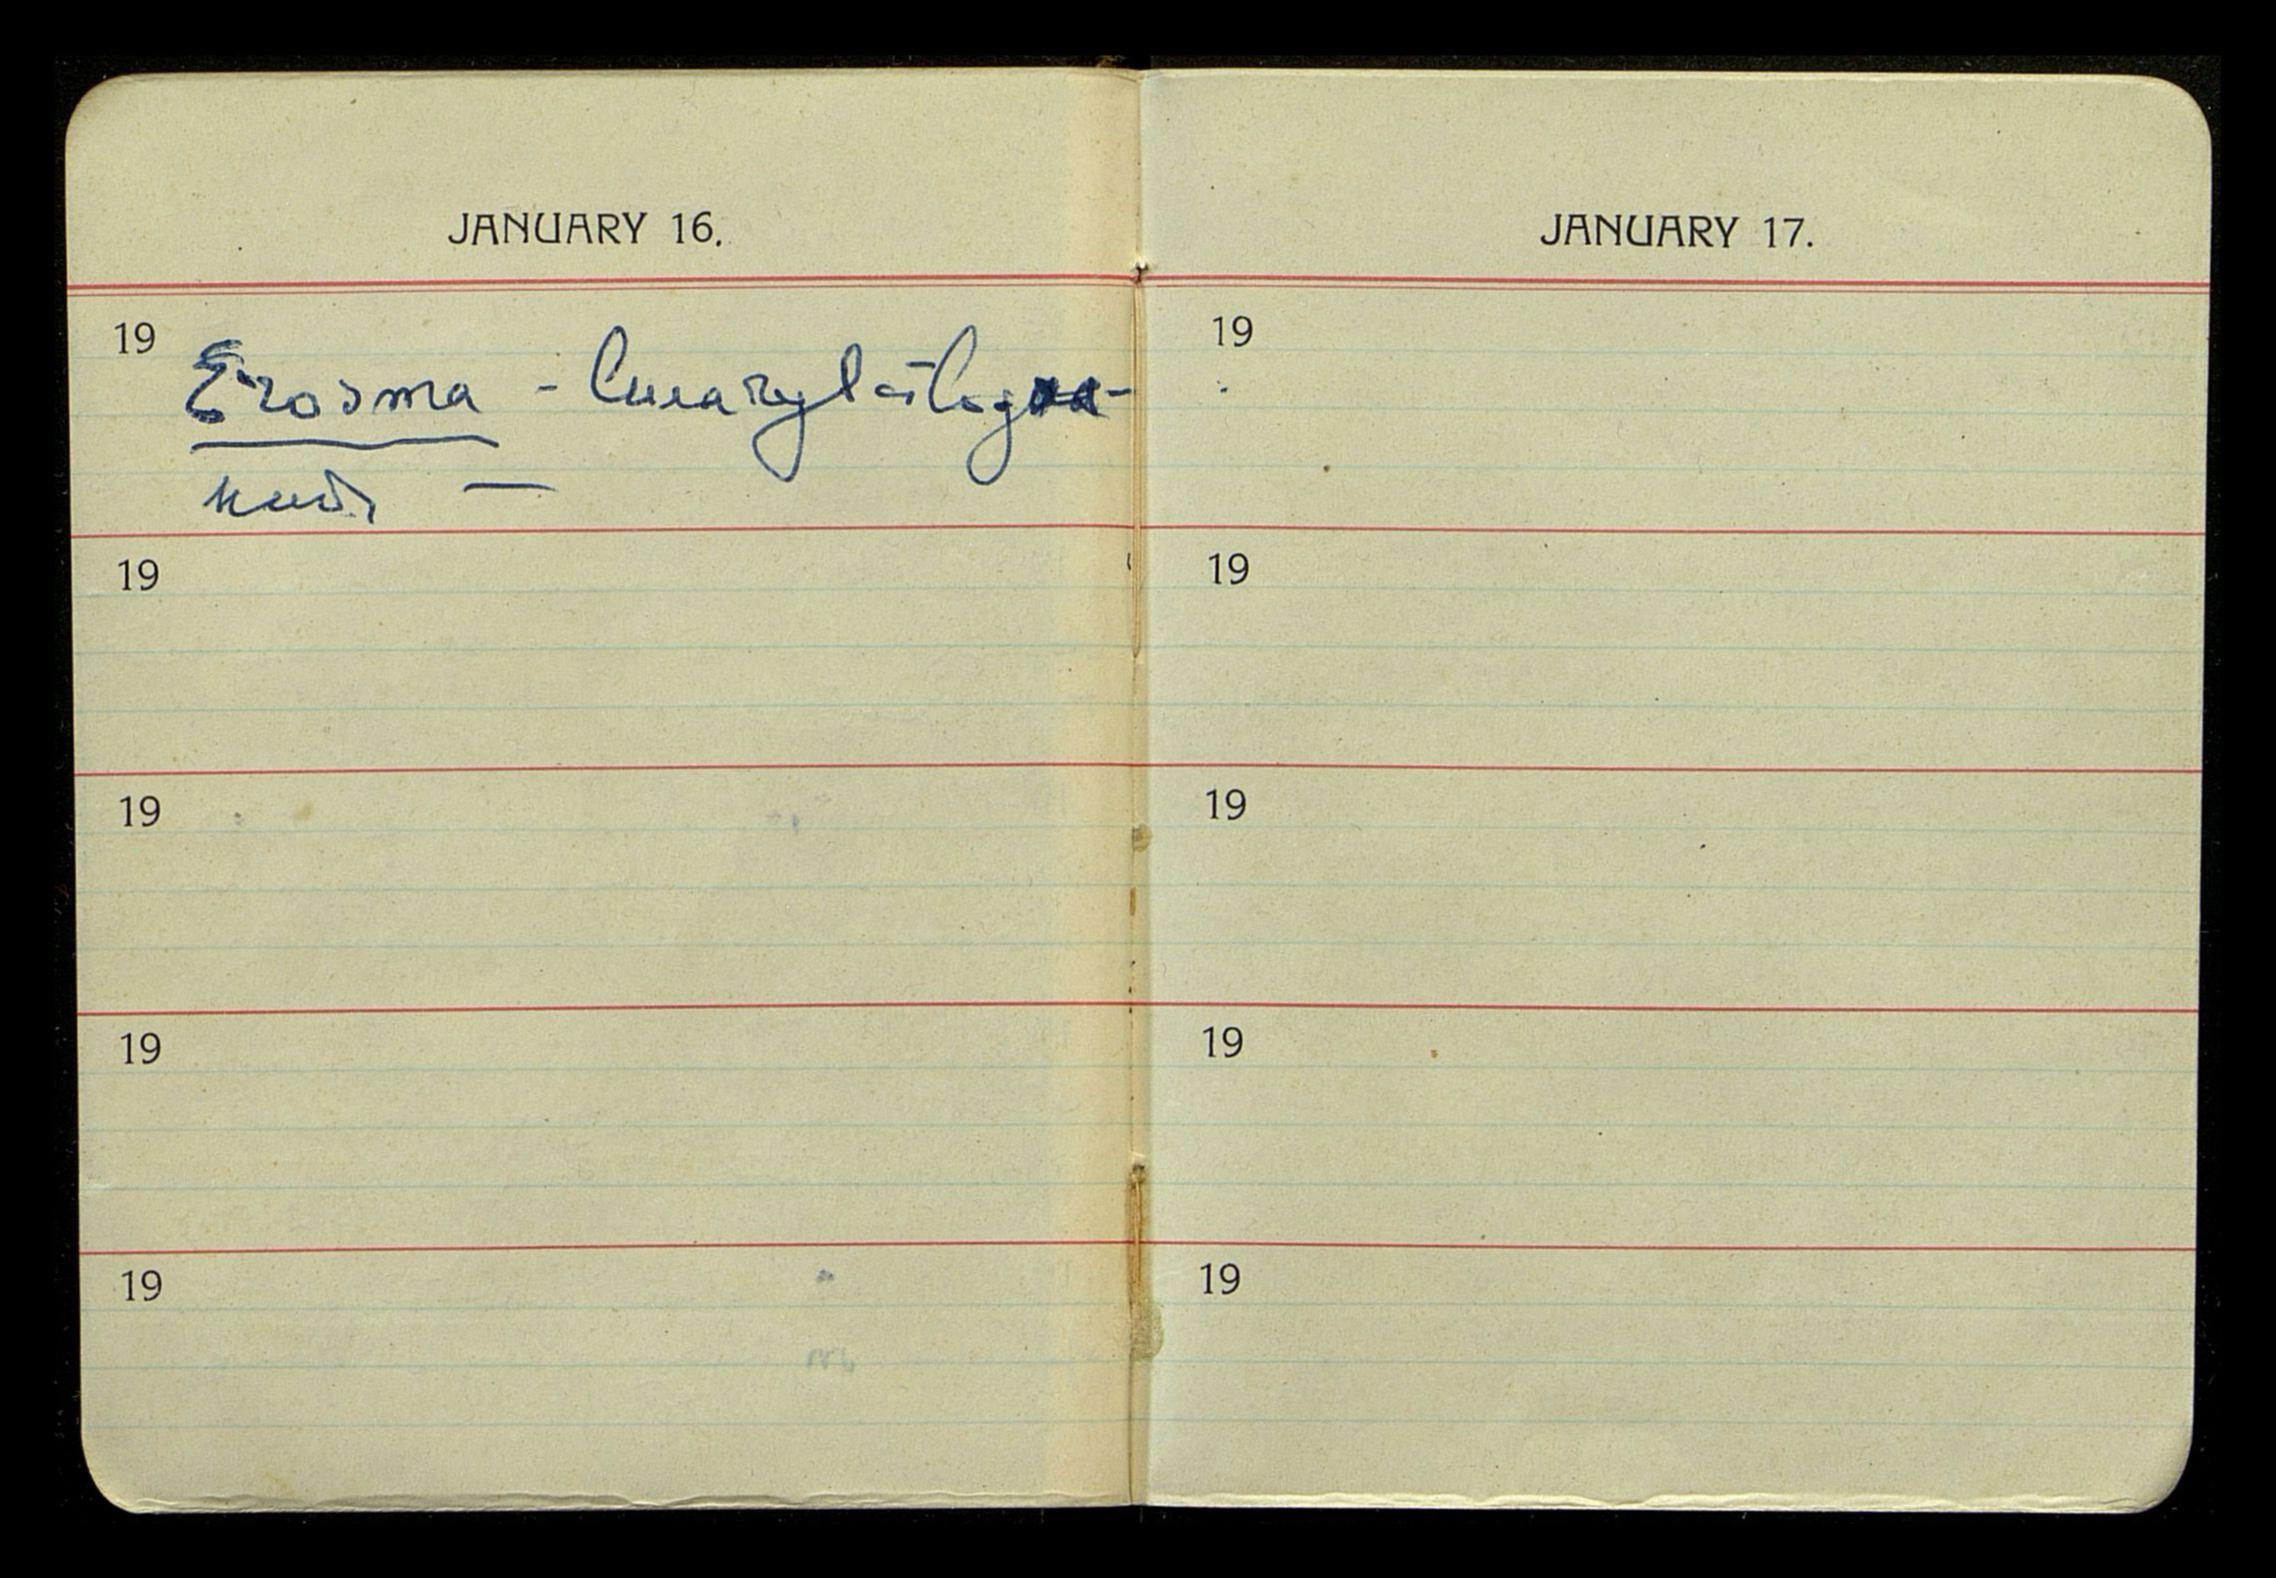 JANUARY 16.
19 Erosma -
19
19
19
19
JANUARY 17.
19
19
19
19
19